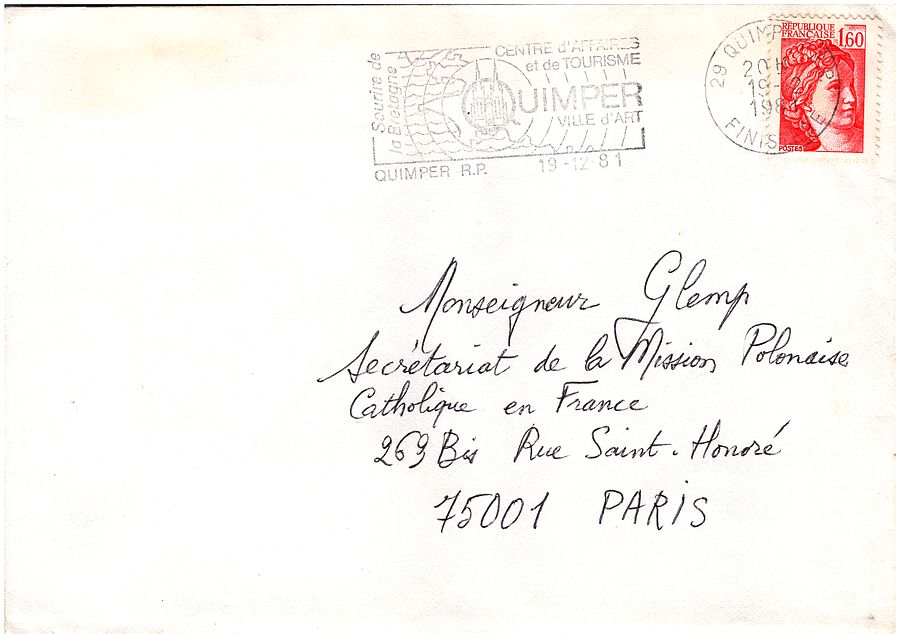 Sourire de
la Bretagne
CENTRE d'AFFAIRES
et de TOURISME
QUIMPER
VILLE d'ART
QUIMPER R.P.
19-12-81
29 QUIMPER
20H
19-
198
FINIS
RÉPUBLIQUE
FRANÇAISE
1,60
POSTES
Monseigneur Glemp
Secrétariat de la Mission Polonaise
Catholique en France
263 Bis Rue Saint-Honoré
75001 PARIS